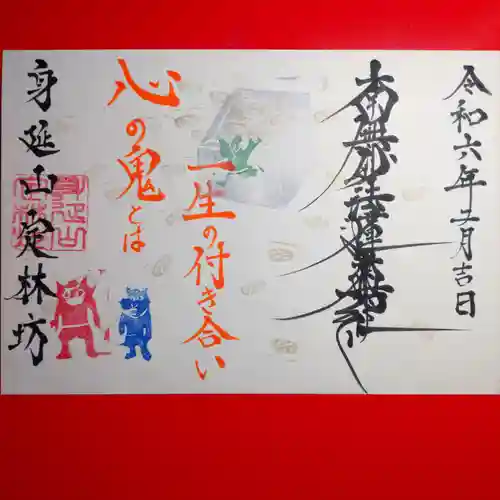 令和六年二月吉日
南無妙法蓮華経
一生の付き合い
心の鬼とは
身延山定林坊